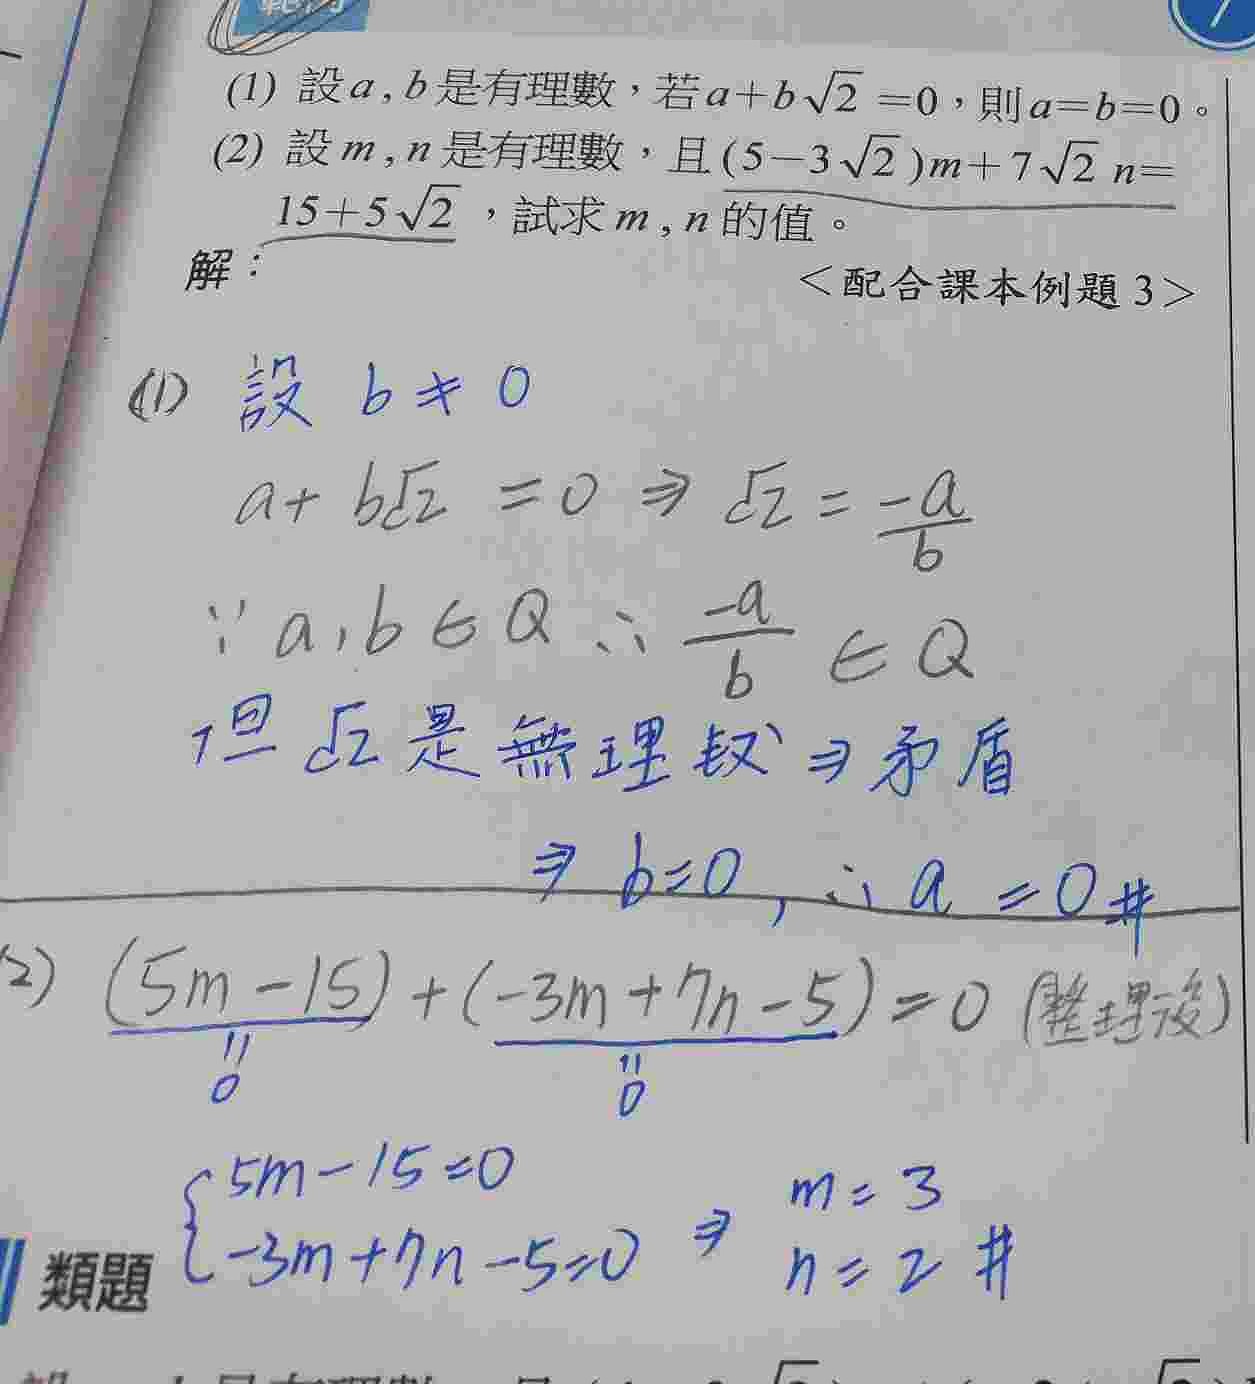 (1) 設a,b是有理數，若a+b√2=0，則a=b=0。
(2) 設m,n是有理數，且(5-3√2)m+7√2 n=
15+5√2，試求m,n的值。
解：
＜配合課本例題3＞
(1) 設 b≠0
a+b√2=0⇒√2=-a/b
∵a,b∈Q ∴ -a/b ∈Q
但√2是無理數⇒矛盾
⇒b=0, ∴a=0#
(2) (5m-15)+(-3m+7n-5)=0 (整理後)
=0 =0
{5m-15=0 ⇒ m=3
{-3m+7n-5=0 n=2#
類題